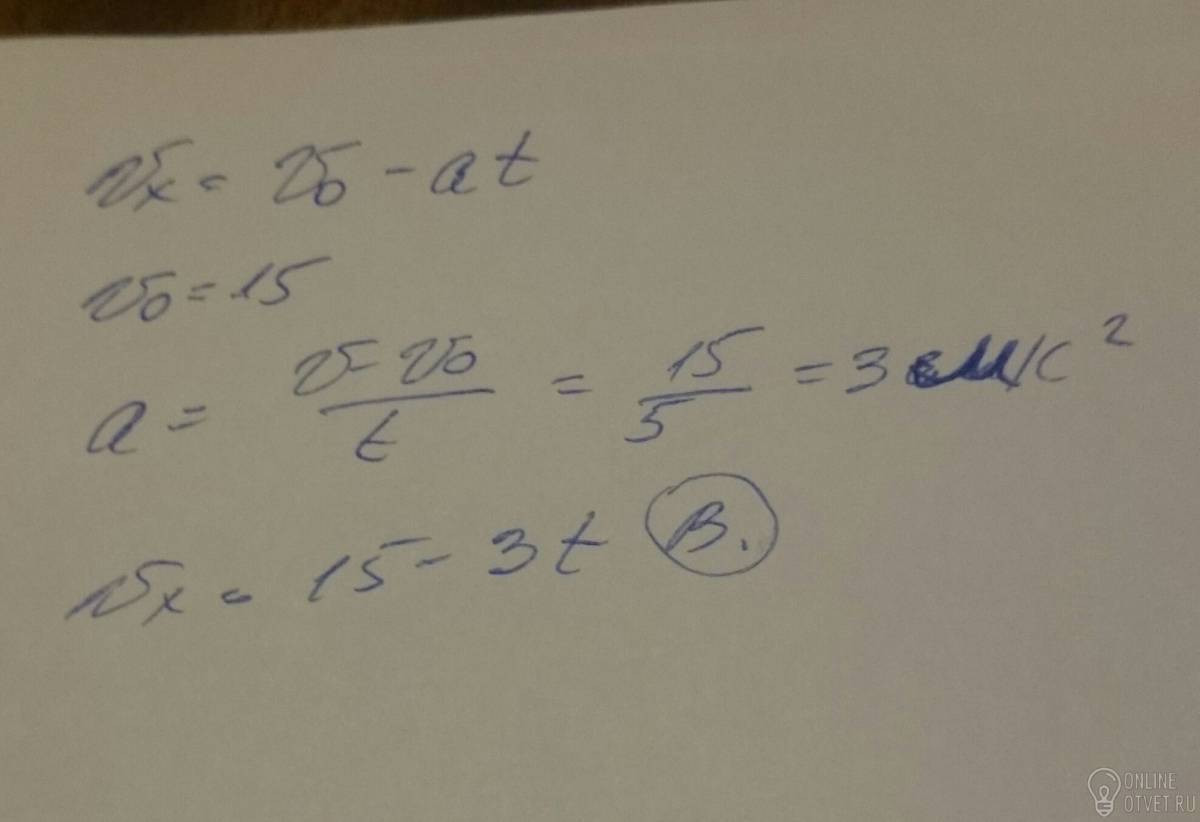 υₓ = υ₀ - at
υ₀ = 15
a = υ - υ₀ / t = 15 / 5 = 3 м/с²
υₓ = 15 - 3t В.
ONLINE
OTVET.RU